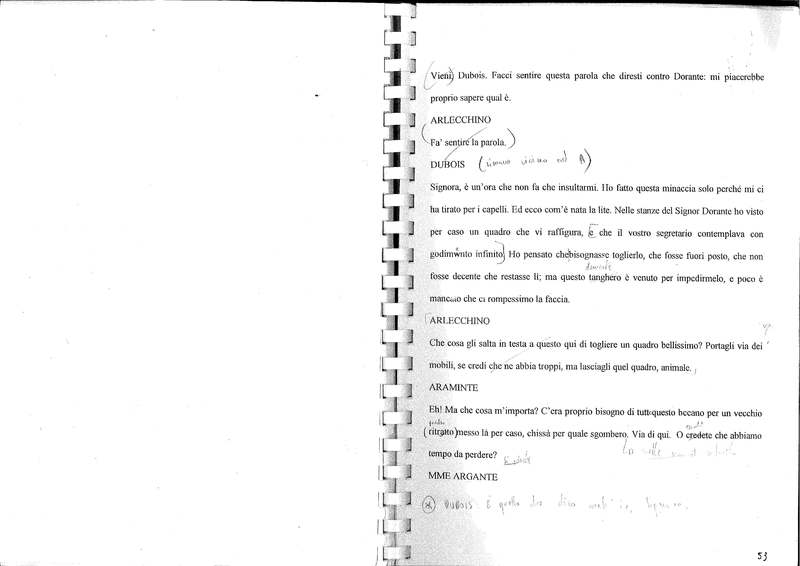 Vieni, Dubois. Facci sentire questa parola che diresti contro Dorante: mi piacerebbe
proprio sapere qual è.
ARLECCHINO
Fa' sentire la parola.
DUBOIS
Signora, è un'ora che non fa che insultarmi. Ho fatto questa minaccia solo perché mi ci
ha tirato per i capelli. Ed ecco com'è nata la lite. Nelle stanze del Signor Dorante ho visto
per caso un quadro che vi raffigura, e che il vostro segretario contemplava con
godimento infinito. Ho pensato che bisognasse toglierlo, che fosse fuori posto, che non
fosse decente che restasse lì; ma questo tanghero è venuto per impedirmelo, e poco è
mancato che ci rompessimo la faccia.
ARLECCHINO
Che cosa gli salta in testa a questo qui di togliere un quadro bellissimo? Portagli via dei
mobili, se credi che ne abbia troppi, ma lasciagli quel quadro, animale.
ARAMINTE
Eh! Ma che cosa m'importa? C'era proprio bisogno di tutto questo beccano per un vecchio
(ritratto) messo là per caso, chissà per quale sgombero. Via di qui. O credete che abbiamo
tempo da perdere?
MME ARGANTE
DUBOIS È quello che
53